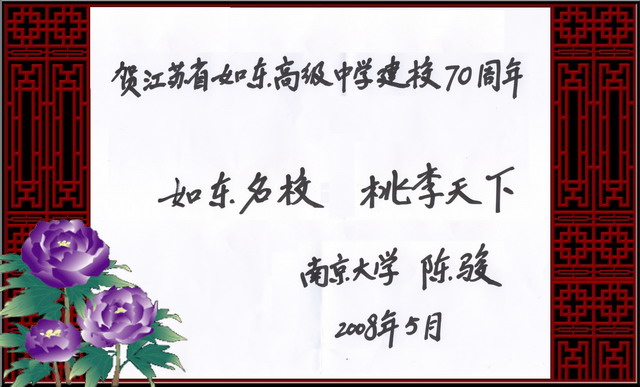 贺江苏省如东高级中学建校70周年
如东名校 桃李天下
南京大学 陈骏
2008年5月